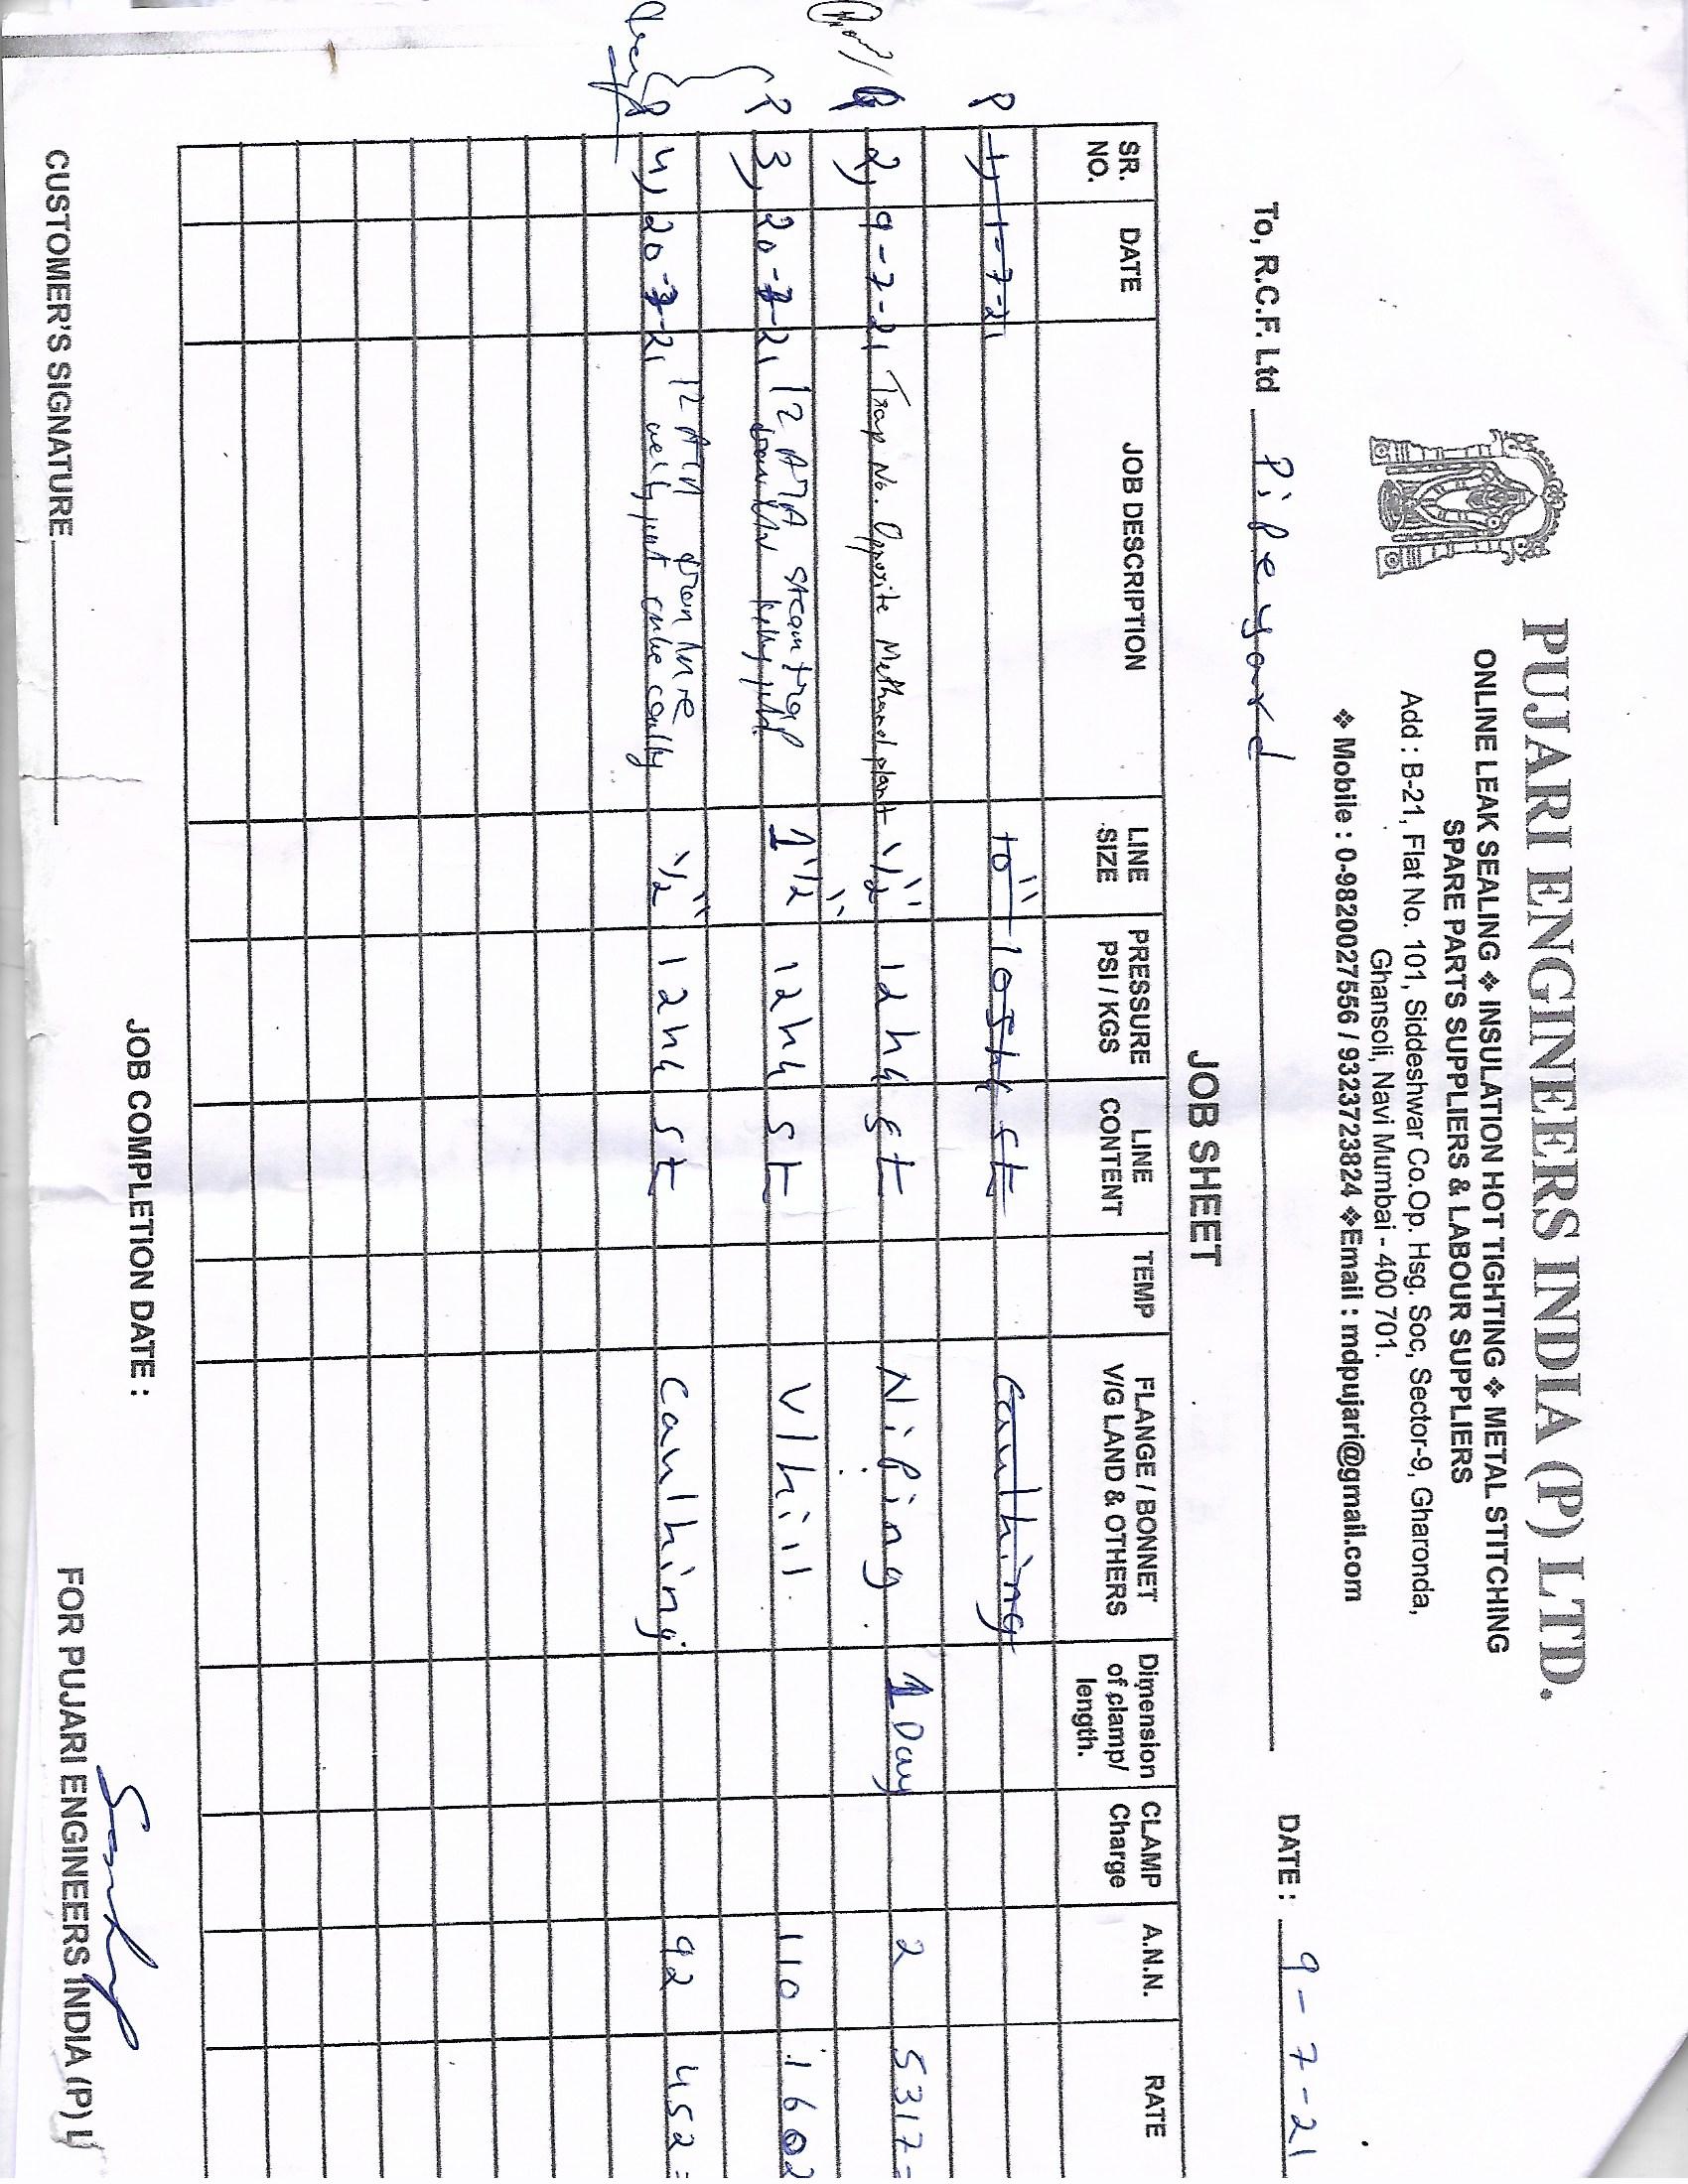 PUJARI ENGINEERS INDIA (P) LTD.
ONLINE LEAK SEALING ❖ INSULATION HOT TIGHTING ❖ METAL STITCHING
SPARE PARTS SUPPLIERS & LABOUR SUPPLIERS
Add : B-21, Flat No. 101, Siddeshwar Co.Op. Hsg. Soc, Sector-9, Gharonda,
Ghansoli, Navi Mumbai - 400 701.
❖ Mobile : 0-9820027556 / 9323723824 ❖Email : mdpujari@gmail.com
To, R.C.F. Ltd Pipeyard DATE : 9-7-21
JOB SHEET
SR. NO. DATE JOB DESCRIPTION LINE SIZE PRESSURE PSI / KGS LINE CONTENT TEMP FLANGE / BONNET V/G LAND & OTHERS Dimension of clamp/ length. CLAMP Charge A.N.N. RATE
P 1) 1-7-21 10" 105k st Caulking
2) 9-7-21 Trap No. Opposite Methanol plant 1/2" 12k st Niping 1 Day 2 5317-
P 3) 20-7-21 12 ATA steam trap 1 1/2" 12k st V/hill. 110 1602
P 4) 20-7-21 12 ATA drain line 1/2" 12k st Caulking 92 452=
JOB COMPLETION DATE :
CUSTOMER'S SIGNATURE FOR PUJARI ENGINEERS INDIA (P) L